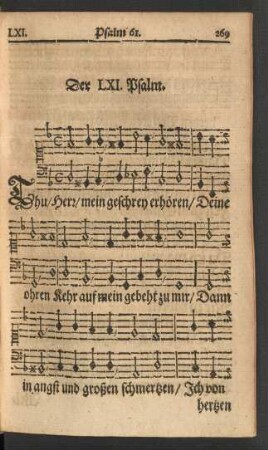 LXI. Psalm 61. 269
Der LXI. Psalm.
Thu/Herr/mein geschrey erhören/Deine
ohren Kehr auf mein gebeht zu mir/Dann
in angst und großen schmertzen/Ich von
hertzen